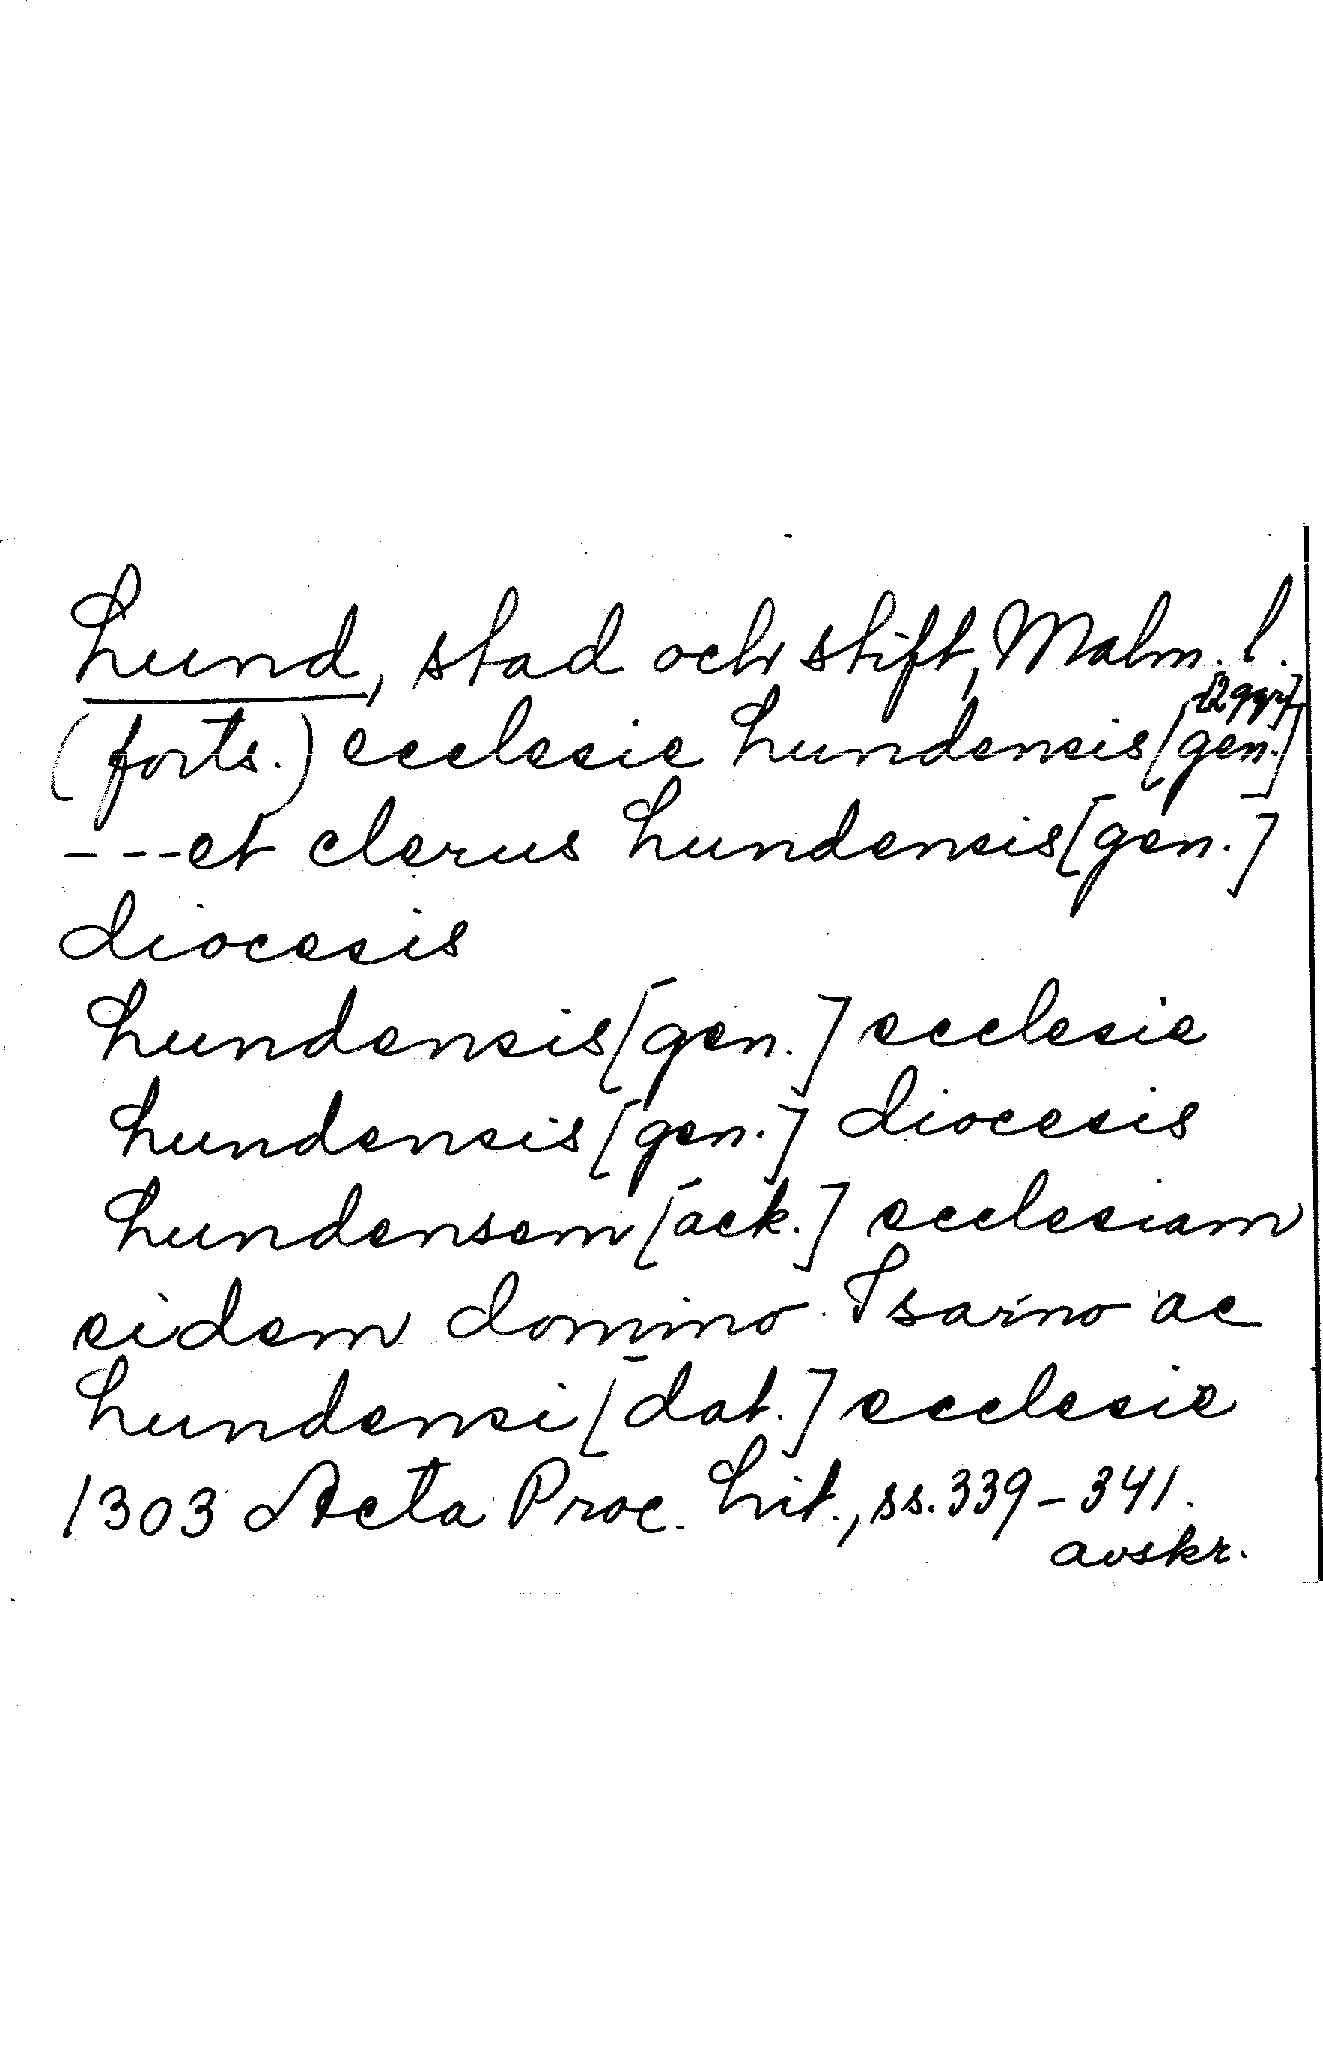 Lund, stad och stift, Malm. l.
(forts.) ecclesie Lundensis [gen.] [2 ggr]
---et clerus Lundensis [gen.]
diocesis
Lundensis [gen.] ecclesie
Lundensis [gen.] diocesis
Lundensem [ack.] ecclesiam
eidem domino Isarno ac
Lundensi [dat.] ecclesie
1303 Acta Proc. Lit., ss. 339-341.
avskr.